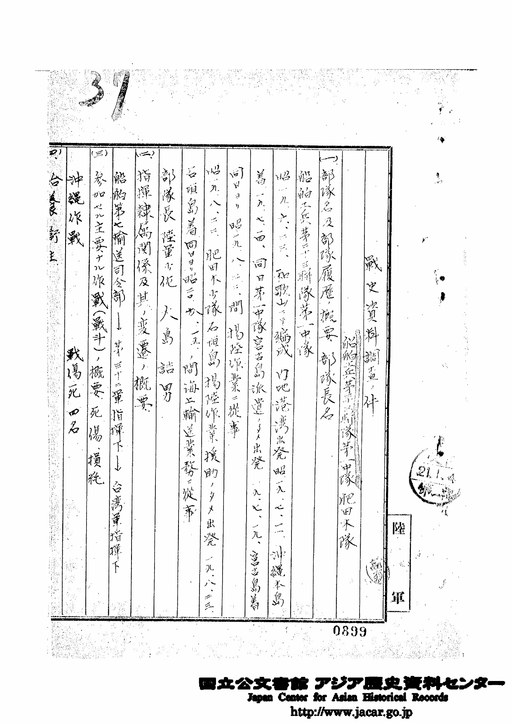 37
戦史資料調査ノ件
船舶兵第十一聯隊第一中隊 肥田木隊
(一) 部隊名及部隊履歴ノ概要 部隊長名
船舶兵第十一聯隊第一中隊
昭一九、六、二三、和歌山ニテ編成 内地港湾出発 昭一九、七、二、沖縄本島
着 一九、七、一四、同日第一中隊宮古島派遣ノタメ出発 一九、七、一九、宮古島着
同日ヨリ昭一九、八、二二、間揚陸作業ニ従事
昭一九、八、二二、肥田木少隊石垣島揚陸作業援助ノタメ出発 一九、八、二三、
石垣島着同日ヨリ昭二〇、八、一五、間海上輸送業務ニ従事
部隊長 陸軍少佐 大島詰男
(二) 指揮隷属関係及其ノ変遷ノ概要
船舶第七輸送司令部→第三十二軍指揮下→台湾軍指揮下
(三) 参加セル主要ナル作戦(戦斗)ノ概要 死傷損耗
沖縄作戦 戦傷死四名
(四)
陸軍
21.1.
0899
国立公文書館 アジア歴史資料センター
Japan Center for Asian Historical Records
http://www.jacar.go.jp